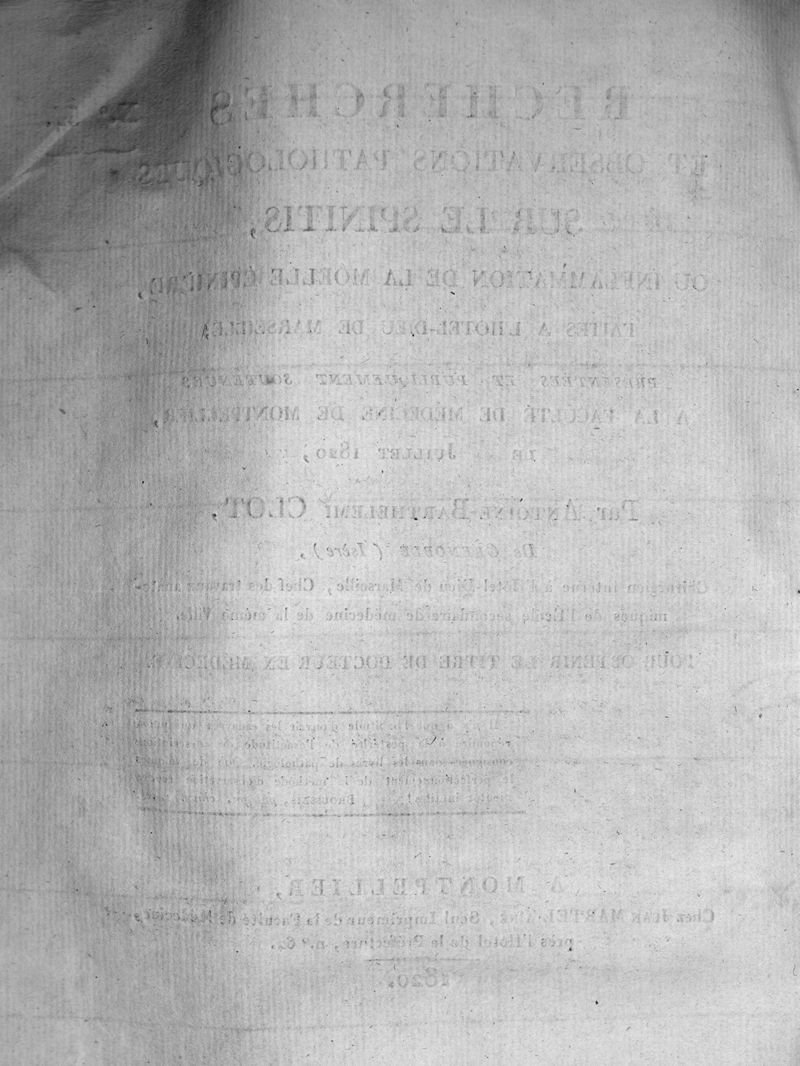 RECHERCHES
ET OBSERVATIONS PATHOLOGIQUES
SUR LE SPINITIS,
OU INFLAMMATION DE LA MOELLE ÉPINIÈRE,
FAITES A L'HÔTEL-DIEU DE MARSEILLE,
PRÉSENTÉES ET PUBLIQUEMENT SOUTENUES
A LA FACULTÉ DE MÉDECINE DE MONTPELLIER,
LE JUILLET 1820,
Par ANTOINE-BARTHELEMI CLOT,
De GRENOBLE (Isère),
Chirurgien interne à l'Hôtel-Dieu de Marseille, Chef des travaux anato-
miques de l'École secondaire de médecine de la même Ville.
POUR OBTENIR LE TITRE DE DOCTEUR EN MÉDECINE.
les livres de pathologie
le perfectionnement de la méthode d'observation
BROUSSAIS,
A MONTPELLIER,
Chez JEAN MARTEL AÎNÉ, Seul Imprimeur de la Faculté de Médecine,
près l'Hôtel de la Préfecture, n.º 62.
1820.